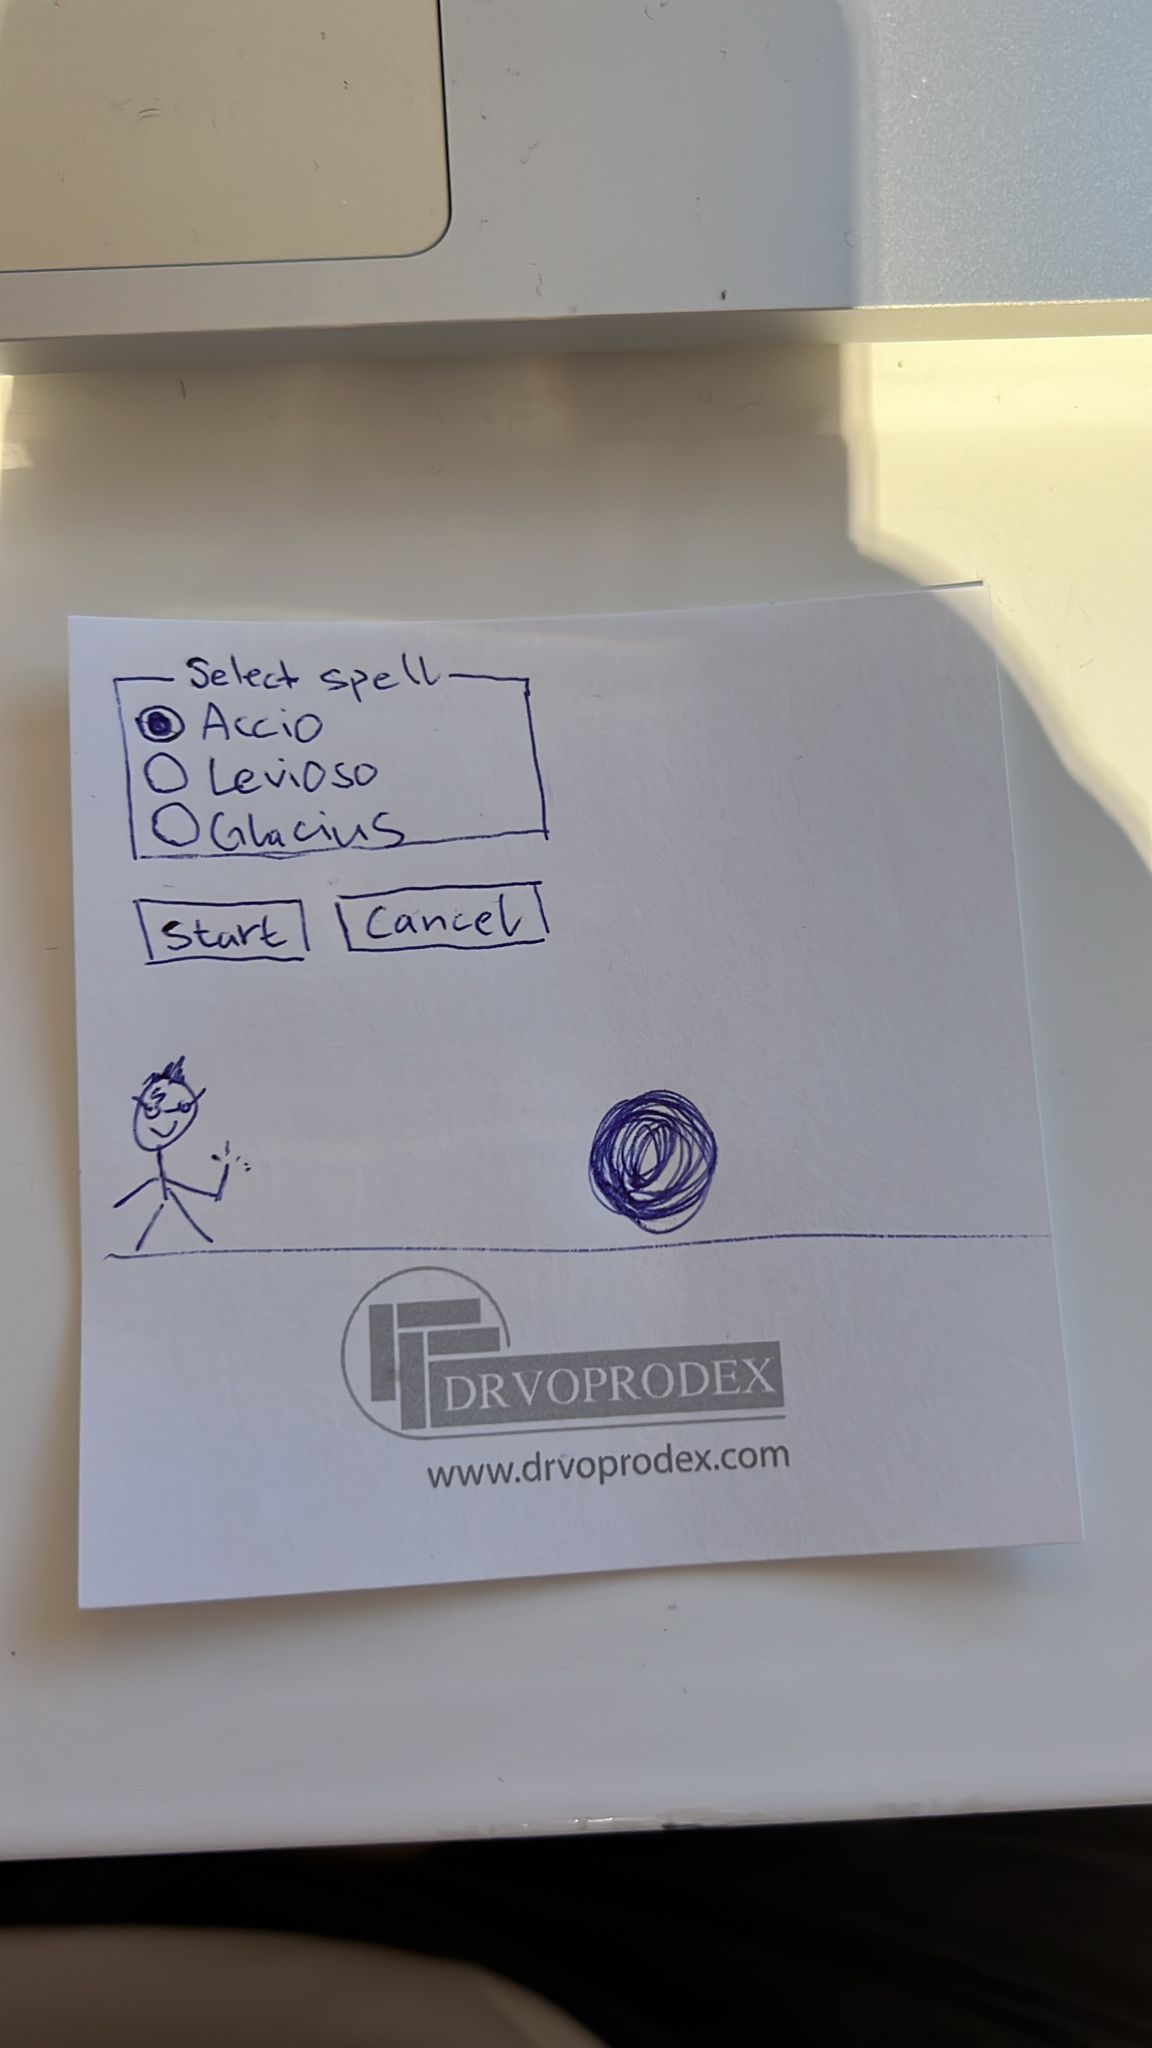 Select spell
Accio
Levioso
Glacius
Start Cancel
DRVOPRODEX
www.drvoprodex.com